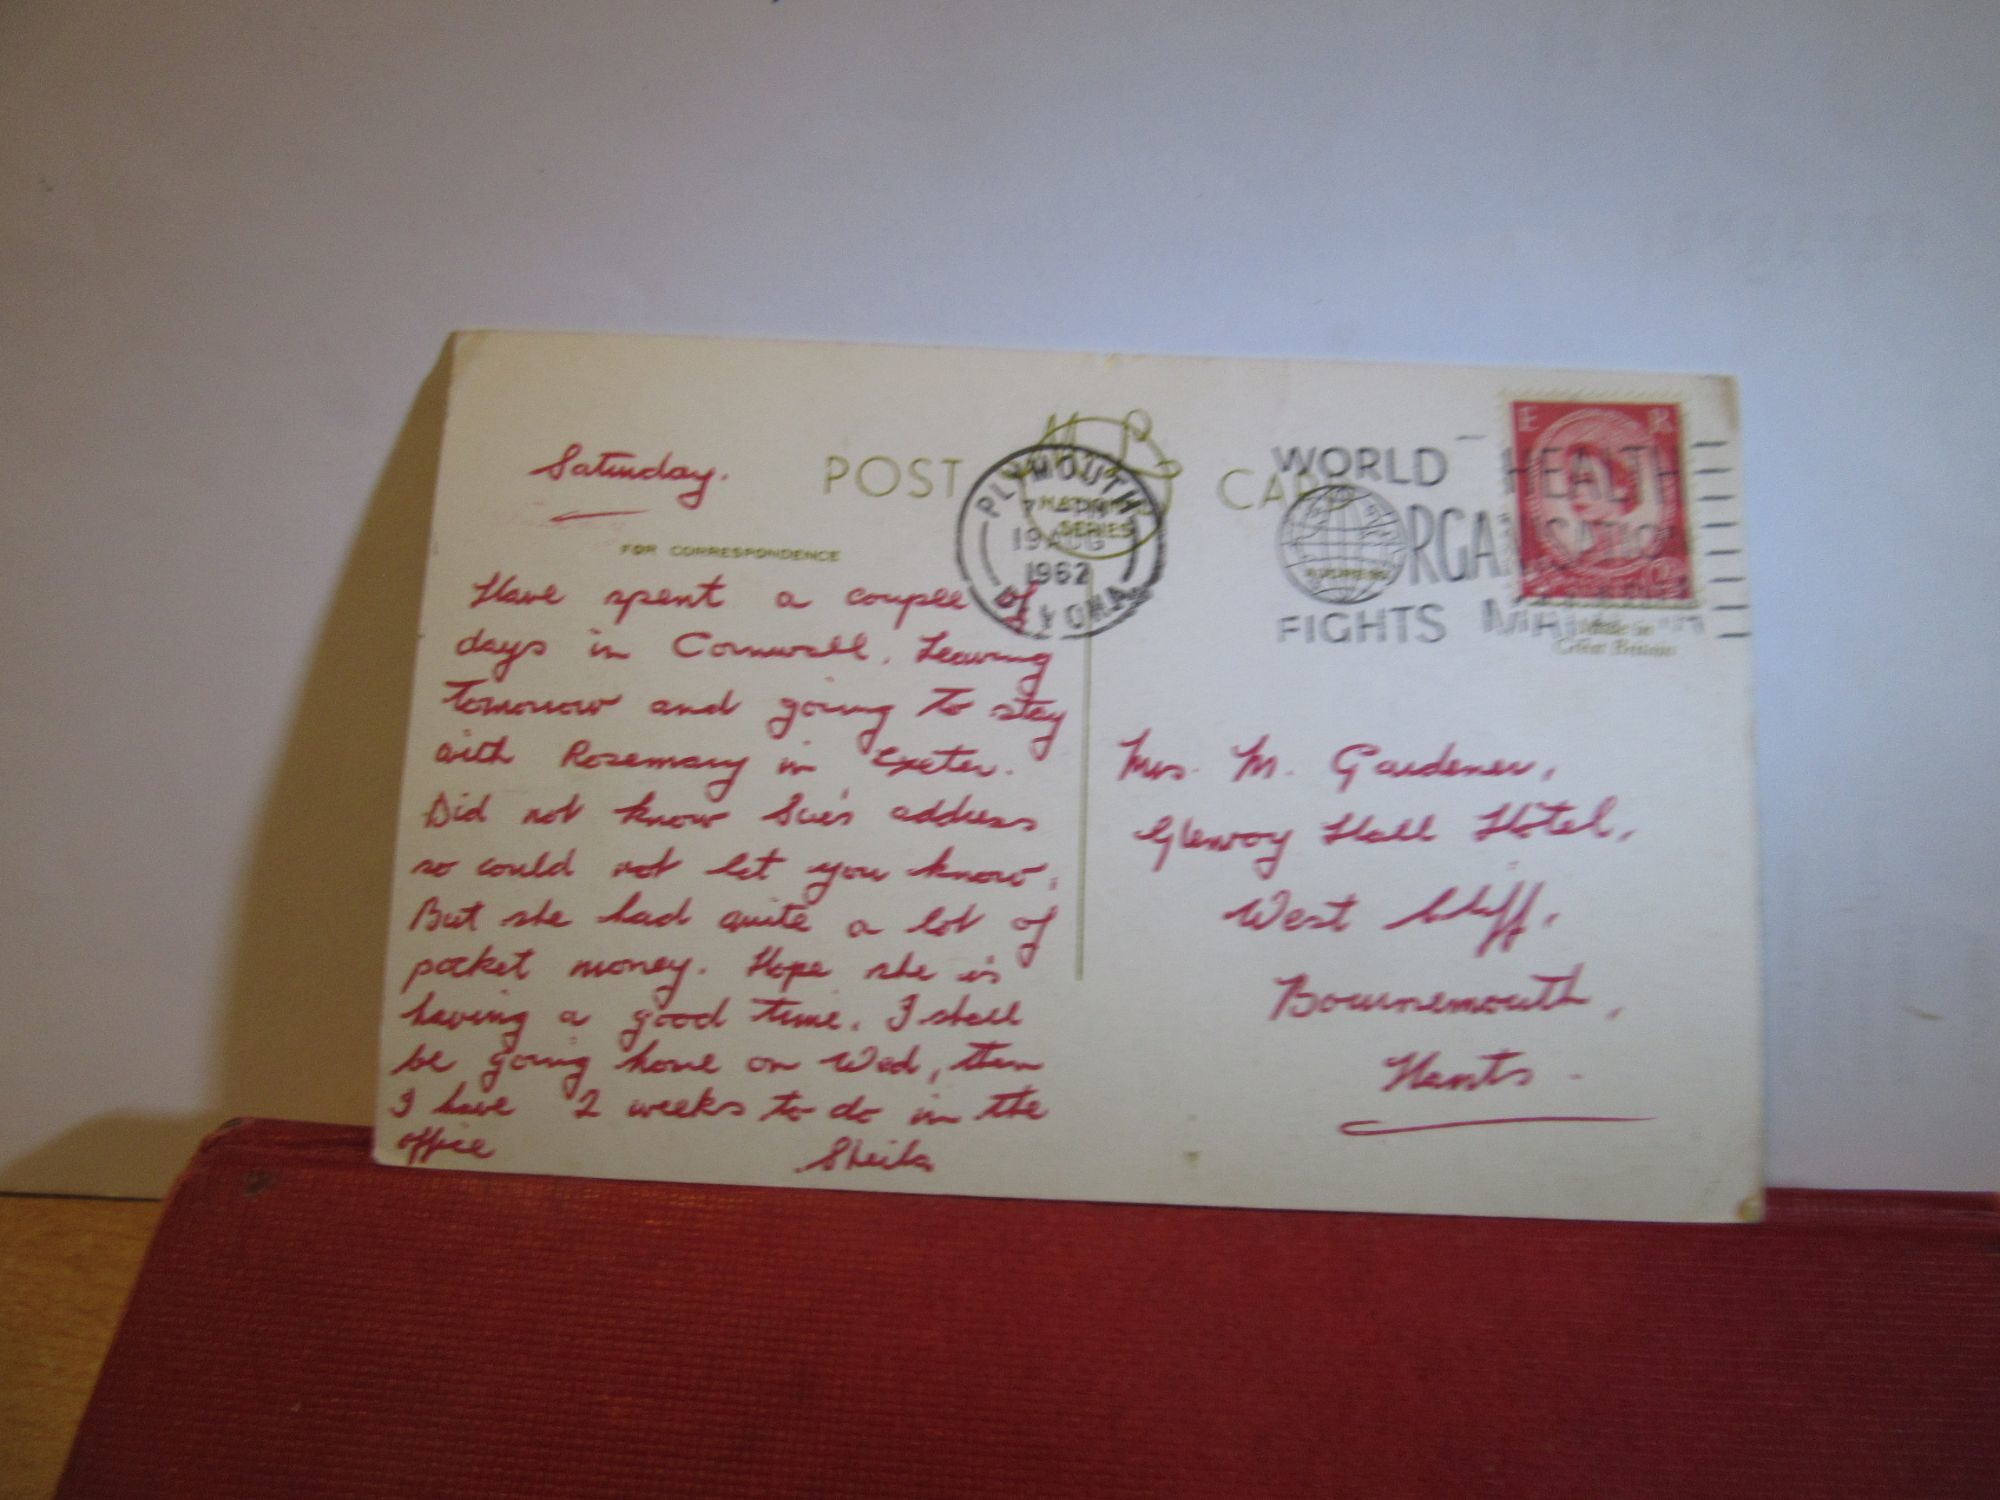 Saturday.
POST CARD
NATIONAL
SERIES
FOR CORRESPONDENCE
PLYMOUTH
19 AUG
1962
DEVON A
WORLD HEALTH
ORGANISATION
FIGHTS MALARIA
ADDRESS
E R
Made in
Great Britain
Have spent a couple of
days in Cornwall. Leaving
tomorrow and going to stay
with Rosemary in Exeter.
Did not know Sue's address
so could not let you know.
But she had quite a lot of
pocket money. Hope she is
having a good time. I shall
be going home on Wed, then
I have 2 weeks to do in the
office
Sheila
Mrs. M. Gardener,
Hall Hotel,
West Cliff,
Bournemouth,
Hants.